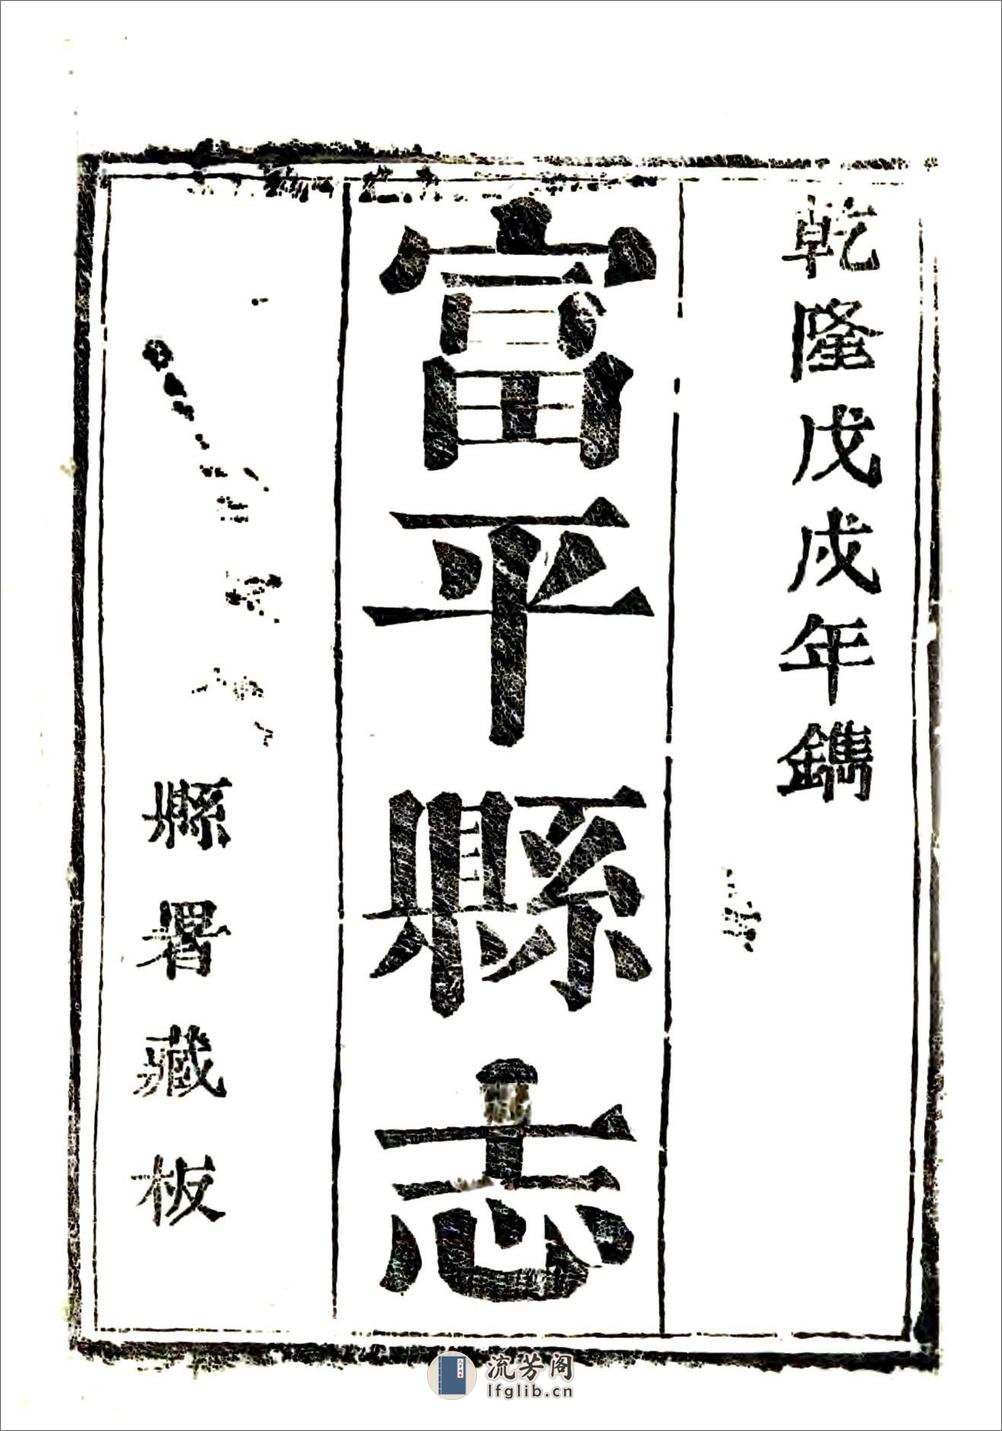 乾隆戊戌年鐫
富平縣志
縣署藏板
流芳阁
lfglib.cn